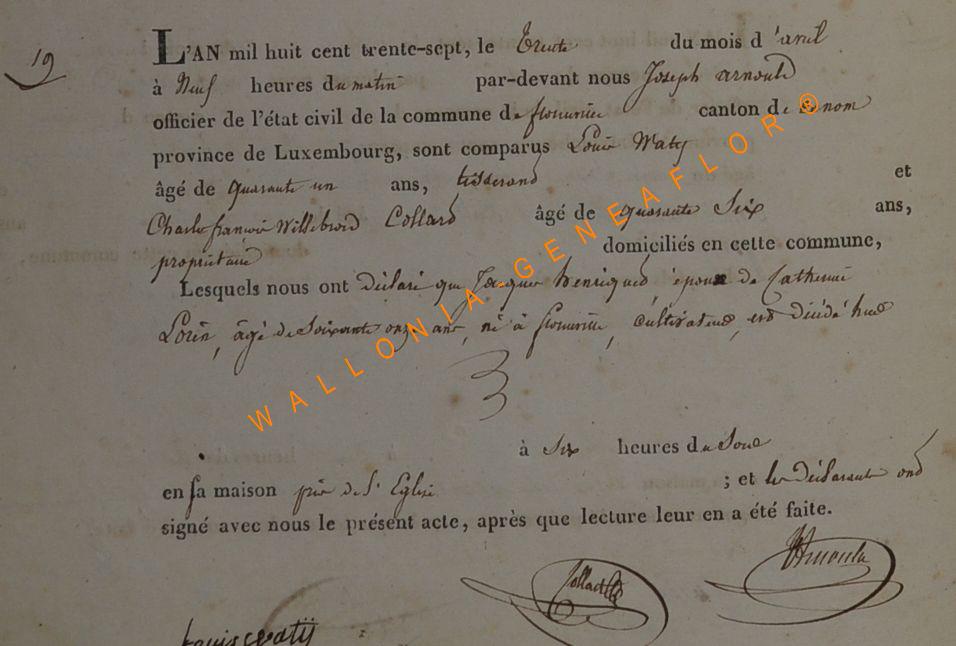 19
L'AN mil huit cent trente-sept, le Trente du mois d'avril
à Neuf heures du matin par-devant nous Joseph arnould
officier de l'état civil de la commune de florenville canton de ce nom
province de Luxembourg, sont comparus Louis Waty
âgé de quarante un ans, tisserand et
Charles françois Willebrord Collard âgé de quarante Six ans,
propriétaire domiciliés en cette commune,
Lesquels nous ont déclaré que Jacques henriquet époux de Catherine
Lorin, âgé de Soixante onze ans, né à florenville, cultivateur, est décédé hier
à Six heures du Soir
en sa maison près de l'Eglise ; et les déclarants ont
signé avec nous le présent acte, après que lecture leur en a été faite.
Collard Arnould
Louis watij
WALLONIA-GENEAFLOR ©